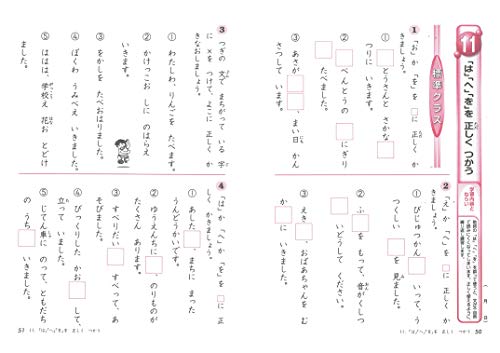 11
「は」「へ」「を」を 正しく つかう
標準クラス
1 「お」か 「を」を □に 正しく か
きましょう。
① □とうさんと さかな□
つりに いきます。
② □べんとうの □にぎり
□ たべます。
③ あさが□ □まい日 かん
さつして います。
2 「え」か 「へ」を □に 正しく か
きましょう。
① びじゅつかん□ いって、う
つくしい □を 見ました。
② ふ□を もって、音がくしつ
□いどうして ください。
③ □き□、おばあちゃんを む
か□に いきました。
3 つぎの 文で まちがって いる 字
に ×を つけて、よこに 正しく か
きなおしましょう。
① わたしわ、りんごを たべます。
② かけっこお しに のはらえ
いきます。
③ をかしを たべおはりました。
④ ぼくわ うみべえ いきました。
⑤ ははは、学校え 花お とどけ
ました。
4 「は」か 「へ」か 「を」を □に 正
しく かきましょう。
① あした□、まちに まった
うんどうかいです。
② ゆうえんちに□、のりものが
たくさん あります。
③ すべりだい□ すべって、あ
そびました。
④ びっくりした かお□ して、
立って いました。
⑤ じてん車に のって、ともだち
の うち□ いきました。
51 11.「は」「へ」「を」を 正しく つかう
11.「は」「へ」「を」を 正しく つかう 50